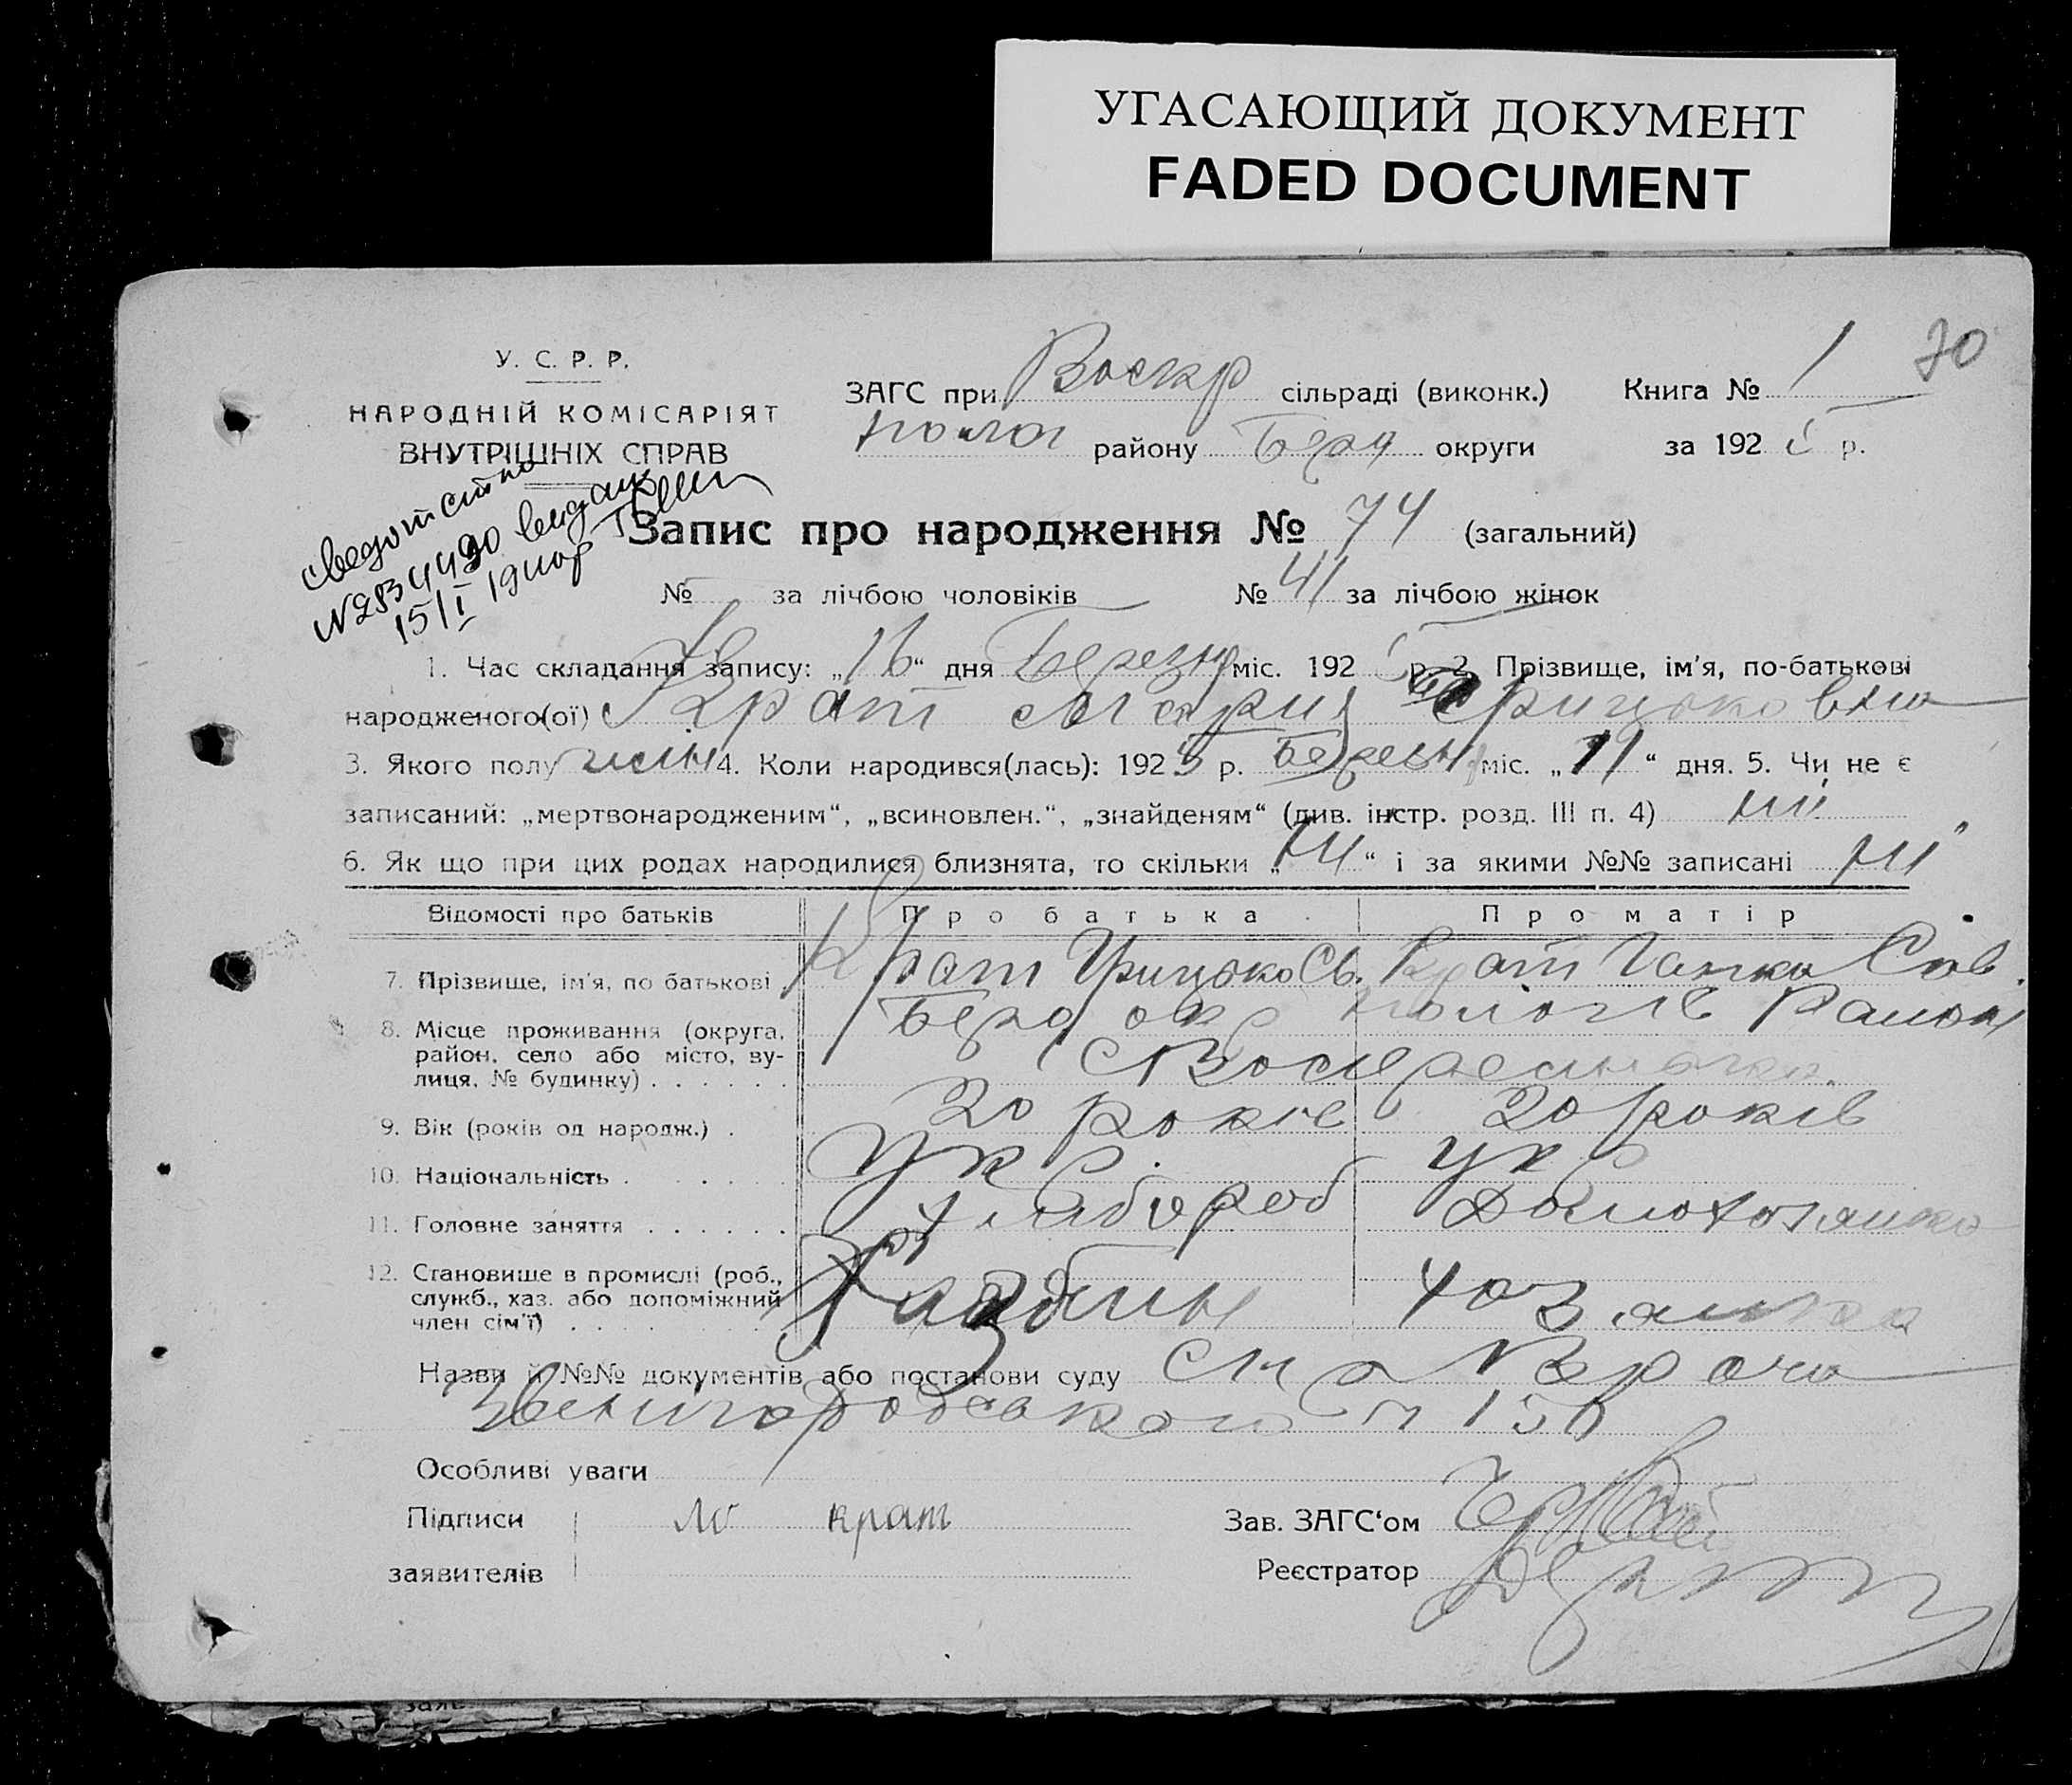 УГАСАЮЩИЙ ДОКУМЕНТ
FADED DOCUMENT
У. С. Р. Р.
НАРОДНІЙ КОМІСАРІЯТ
ВНУТРІШНІХ СПРАВ
ЗАГС при Воскр сільраді (виконк.) Книга № 1 70
полог району Берд округи за 192 р.
№ 2834490
15/I
Запис про народження № 74 (загальний)
№ за лічбою чоловіків № 41 за лічбою жінок
1. Час складання запису: „16“ дня Березня міс. 192 р. 2. Прізвище, ім'я, по-батькові
народженого(ої) Крат Мария Грицьковна
3. Якого полу жин 4. Коли народився(лась): 1925 р. Березня міс. „11“ дня. 5. Чи не є
записаний: „мертвонародженим“, „всиновлен.“, „знайденям“ (див. інстр. розд. III п. 4) ні
6. Як що при цих родах народилися близнята, то скільки „ні“ і за якими №№ записані ні
Відомості про батьків Про батька Про матір
7. Прізвище, ім'я, по батькові Крат Грицько Сь. Крат Ганна Сав.
8. Місце проживання (округа, район, село або місто, вулиця, № будинку) Берд окр Пологів Район
С Воскресенка
9. Вік (років од народж.) 20 років 20 років
10. Національність укр укр
11. Головне заняття хлебороб домохозяйка
12. Становище в промислі (роб., служб., хаз. або допоміжний член сім'ї) хозяйка
Назви й №№ документів або постанови суду Сп а Врача
Звенигородського № 156
Особливі уваги
Підписи крат Зав. ЗАГС'ом
заявителів Реєстратор